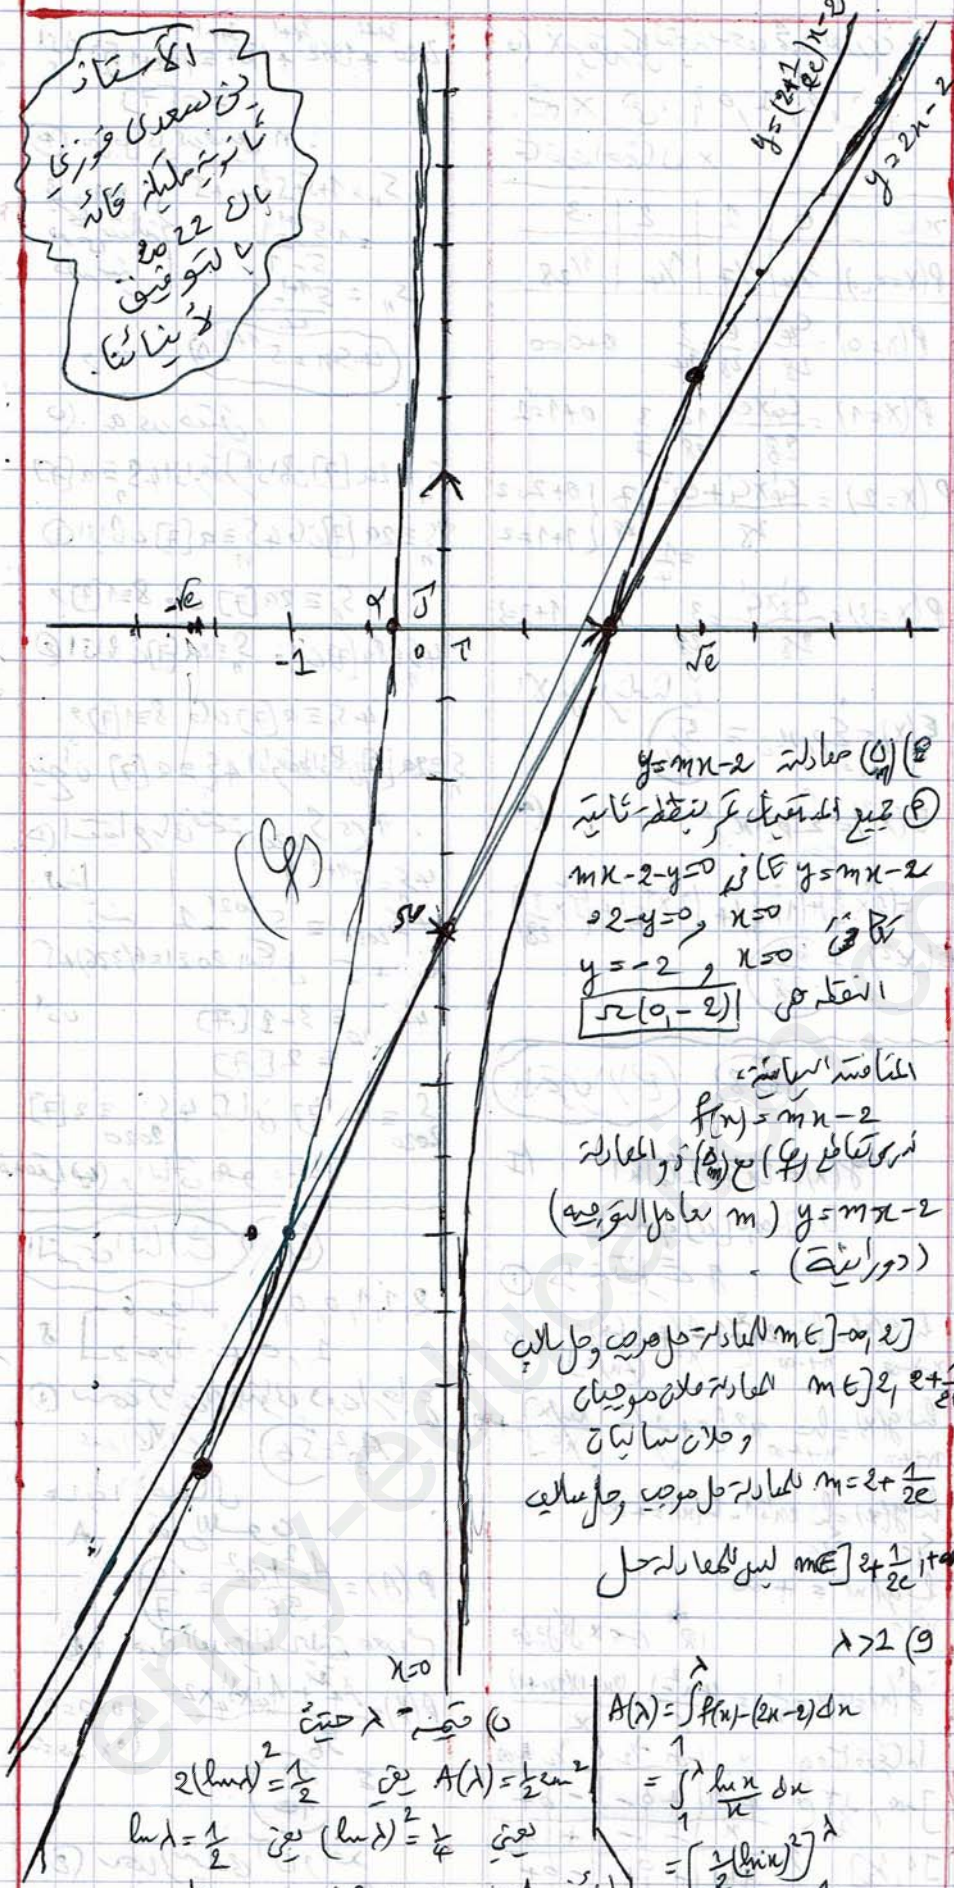 الأستاذ
بن سعدي فوزي
ثانوية مليكة قائد
باك 2022
بالتوفيق
لأبنائنا.
y=(2+1/2e)x-2
y=2x-2
-√e
-1
α
0
√e
(φ)
x=0
8) (Δm) معادلة y=mx-2
جميع المستقيمات تمر بنقطة ثابتة
y=mx-2 تكافئ mx-2-y=0
تكافئ x=0 و -2-y=0
x=0 و y=-2
النقطة هي Ω(0,-2)
المناقشة البيانية:
f(x)=mx-2
ندرس تقاطع (φ) مع (Δm) ذو المعادلة
y=mx-2 (m معامل التوجيه)
(دورانية).
m∈]-∞,2] للمعادلة حل موجب وحل سالب
m∈]2, 2+1/2e المعادلة حلان موجبان
وحلان سالبان
m=2+1/2e للمعادلة حل موجب وحل سالب
m∈]2+1/2e,+∞ ليس للمعادلة حل
9) λ>1
A(λ)=∫₁^λ f(x)-(2x-2)dx
=∫₁^λ lnx/x dx
=[1/2(lnx)²]₁^λ
ب) قيمة λ حيث
A(λ)=1/2cm² يعني 2(lnλ)²=1/2
يعني (lnλ)²=1/4 يعني lnλ=1/2